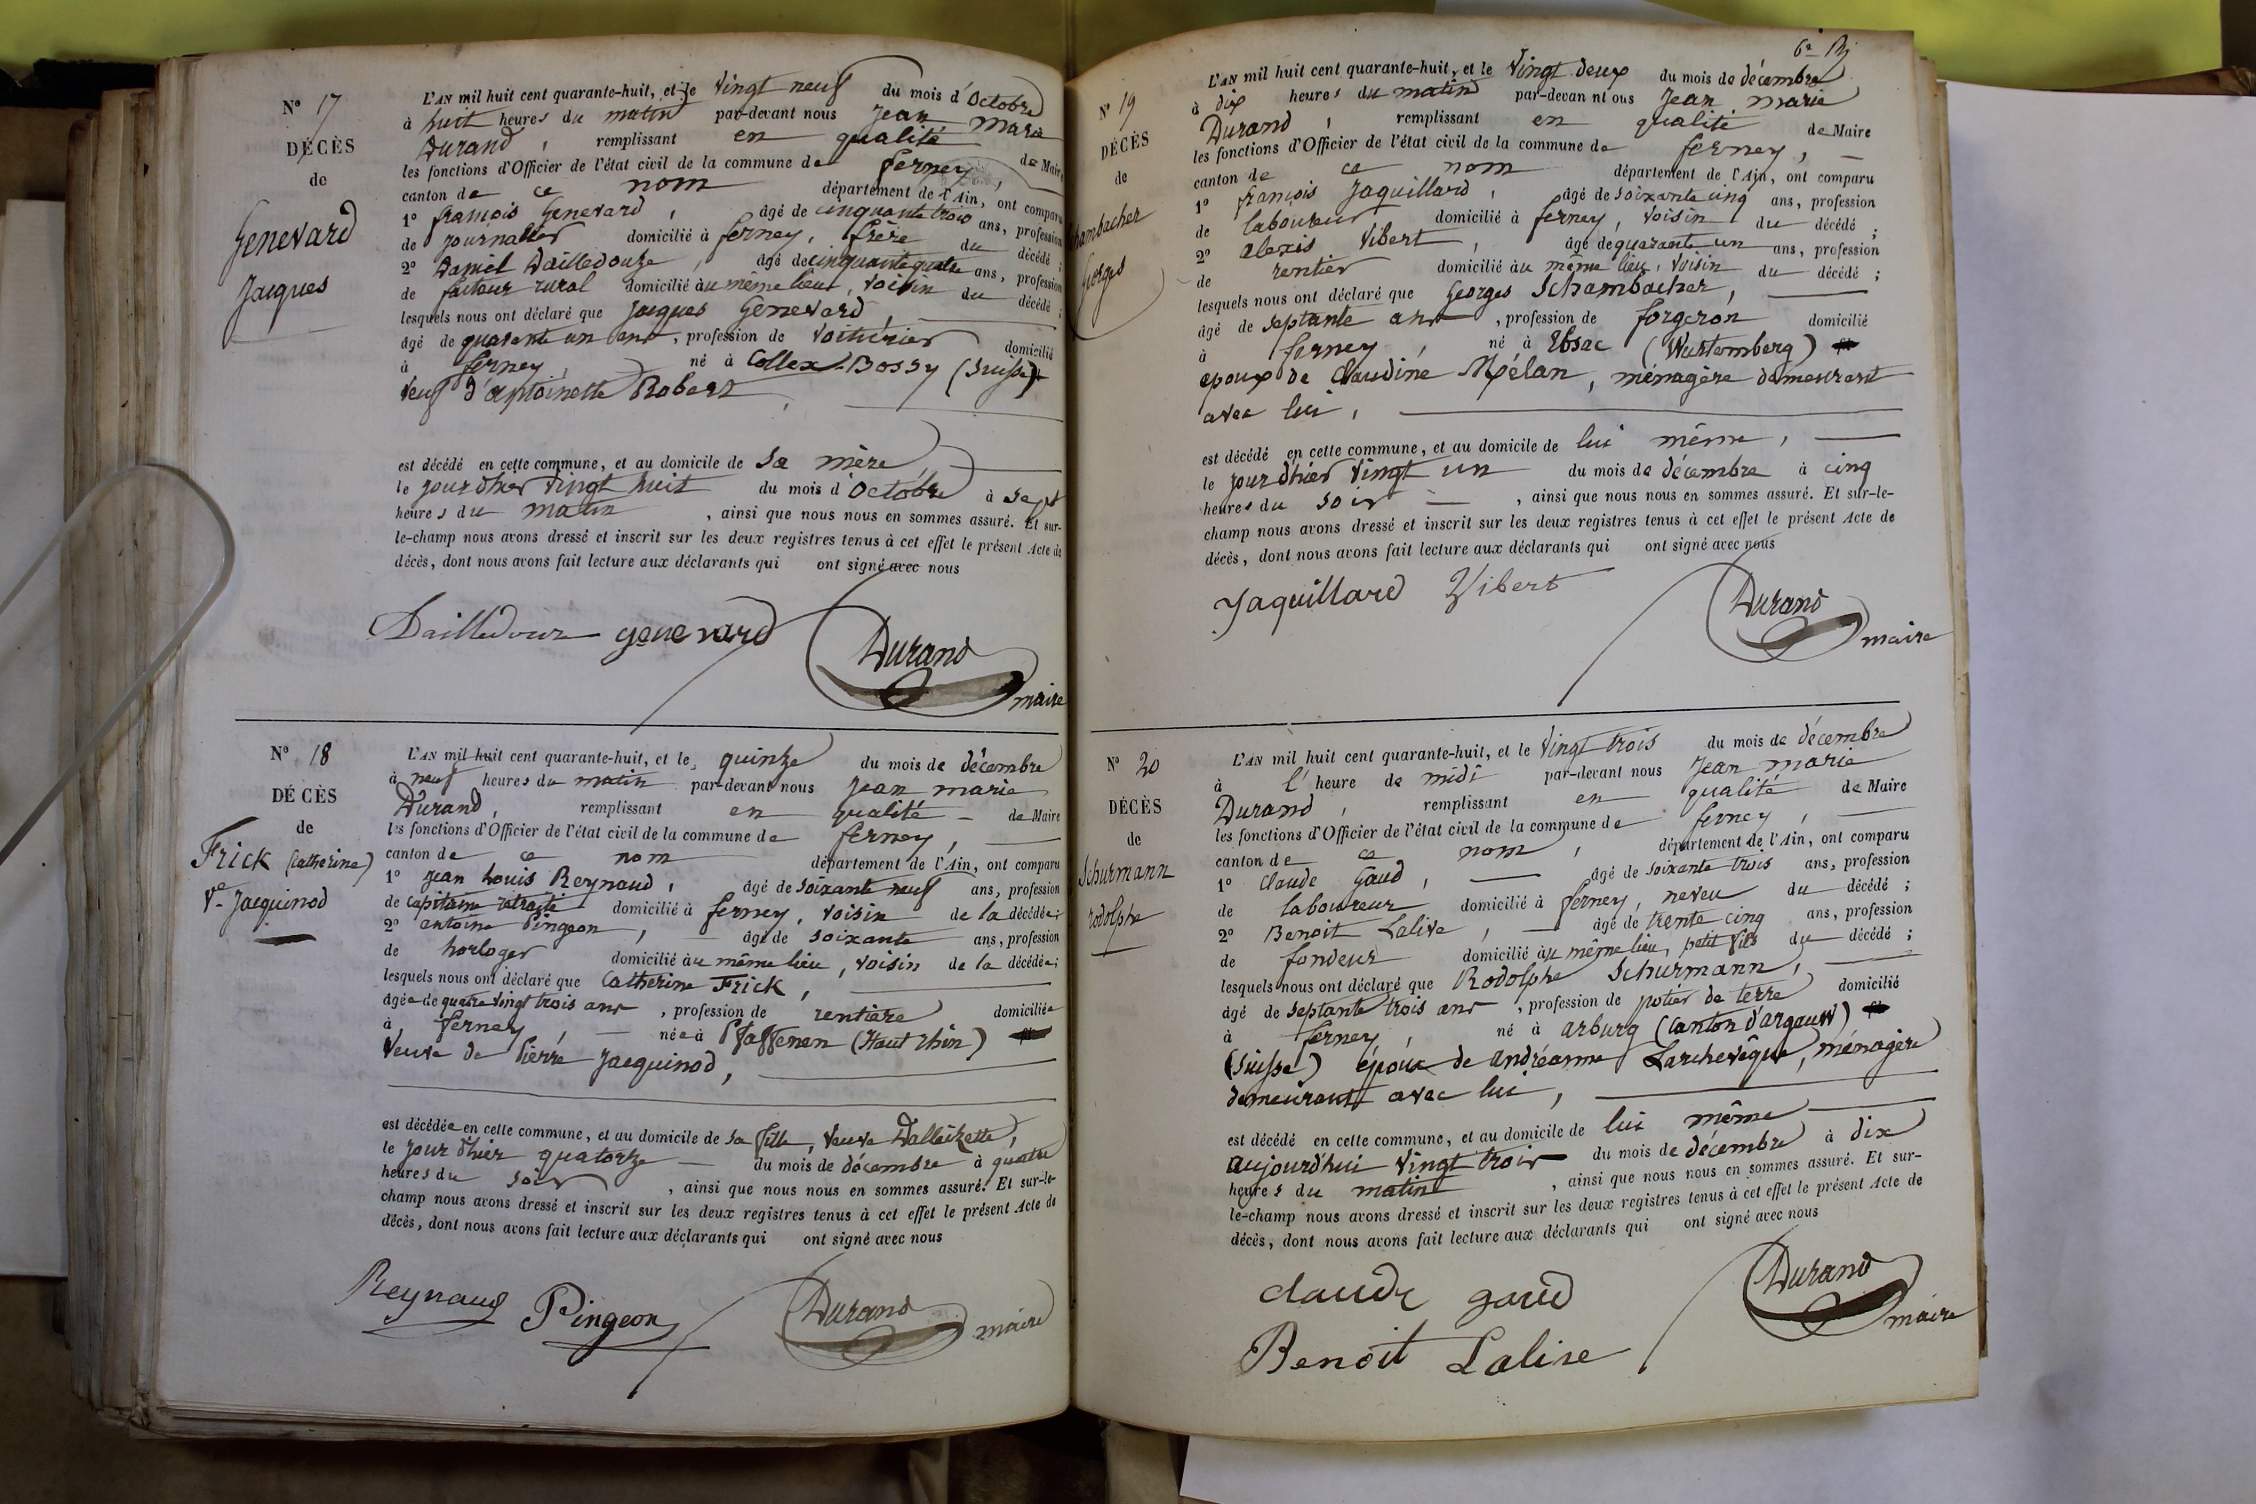 N° 17
DÉCÈS
de
Genevard
Jacques
L'AN mil huit cent quarante-huit, et le vingt neuf du mois d'Octobre
à huit heures du matin par-devant nous Jean Marie
Durand, remplissant en qualité de Maire
les fonctions d'Officier de l'état civil de la commune de ferney,
canton de ce nom département de l'Ain, ont comparu
1° françois Genevard, âgé de cinquante trois ans, profession
de journalier domicilié à ferney, frère du décédé ;
2° Daniel Dailledouze, âgé de cinquante quatre ans, profession
de facteur rural domicilié au même lieu, voisin du décédé ;
lesquels nous ont déclaré que Jacques Genevard,
âgé de quarante un ans, profession de voiturier domicilié
à ferney, né à Collex-Bossy (Suisse)
veuf d'Antoinette Robert,
est décédé en cette commune, et au domicile de sa mère,
le jour d'hier vingt huit du mois d'Octobre à sept
heures du matin, ainsi que nous nous en sommes assuré. Et sur-
le-champ nous avons dressé et inscrit sur les deux registres tenus à cet effet le présent Acte de
décès, dont nous avons fait lecture aux déclarants qui ont signé avec nous
Dailledouze genevard Durand
maire
N° 18
DÉCÈS
de
Frick (Catherine)
Ve Jacquinod
L'AN mil huit cent quarante-huit, et le quinze du mois de décembre
à neuf heures du matin par-devant nous Jean marie
Durand, remplissant en qualité de Maire
les fonctions d'Officier de l'état civil de la commune de ferney,
canton de ce nom département de l'Ain, ont comparu
1° Jean Louis Reynaud, âgé de soixante neuf ans, profession
de capitaine retraité domicilié à ferney, voisin de la décédée;
2° antoine Pingeon, âgé de soixante ans, profession
de horloger domicilié au même lieu, voisin de la décédée;
lesquels nous ont déclaré que Catherine Frick,
âgée de quatre vingt trois ans, profession de rentière domiciliée
à ferney, née à Pfaffenen (Haut Rhin)
veuve de Pierre Jacquinod,
est décédée en cette commune, et au domicile de sa fille, veuve Dalleizette,
le jour d'hier quatorze du mois de décembre à quatre
heures du soir, ainsi que nous nous en sommes assuré. Et sur-le-
champ nous avons dressé et inscrit sur les deux registres tenus à cet effet le présent Acte de
décès, dont nous avons fait lecture aux déclarants qui ont signé avec nous
Reynaud Pingeon Durand maire
N° 19
DÉCÈS
de
Schambacher
Georges
L'AN mil huit cent quarante-huit, et le vingt deux du mois de décembre
à dix heures du matin par-devant nous Jean marie
Durand, remplissant en qualité de Maire
les fonctions d'Officier de l'état civil de la commune de ferney,
canton de ce nom département de l'Ain, ont comparu
1° françois Jaquillard, âgé de soixante cinq ans, profession
de laboureur domicilié à ferney, voisin du décédé ;
2° alexis Vibert, âgé de quarante un ans, profession
de rentier domicilié au même lieu, voisin du décédé ;
lesquels nous ont déclaré que Georges Schambacher,
âgé de septante ans, profession de forgeron domicilié
à ferney, né à Ebsac (Wurtemberg)
époux de Claudine Mélan, ménagère demeurant
avec lui,
est décédé en cette commune, et au domicile de lui même,
le jour d'hier vingt un du mois de décembre à cinq
heures du soir, ainsi que nous nous en sommes assuré. Et sur-le-
champ nous avons dressé et inscrit sur les deux registres tenus à cet effet le présent Acte de
décès, dont nous avons fait lecture aux déclarants qui ont signé avec nous
Jaquillard Vibert Durand
maire
N° 20
DÉCÈS
de
Schurmann
rodolphe
L'AN mil huit cent quarante-huit, et le vingt trois du mois de décembre
à l'heure de midi par-devant nous Jean marie
Durand, remplissant en qualité de Maire
les fonctions d'Officier de l'état civil de la commune de ferney,
canton de ce nom, département de l'Ain, ont comparu
1° Claude Gaud, âgé de soixante trois ans, profession
de laboureur domicilié à ferney, neveu du décédé ;
2° Benoit Lalive, âgé de trente cinq ans, profession
de fondeur domicilié au même lieu, petit fils du décédé ;
lesquels nous ont déclaré que Rodolphe Schurmann,
âgé de septante trois ans, profession de potier de terre domicilié
à ferney, né à arburg (Canton d'argauw)
(Suisse) époux de andréanne Larchevêque, ménagère
demeurant avec lui,
est décédé en cette commune, et au domicile de lui même
aujourd'hui vingt trois du mois de décembre à dix
heures du matin, ainsi que nous nous en sommes assuré. Et sur-
le-champ nous avons dressé et inscrit sur les deux registres tenus à cet effet le présent Acte de
décès, dont nous avons fait lecture aux déclarants qui ont signé avec nous
claude gaud Durand
maire
Benoit Lalive